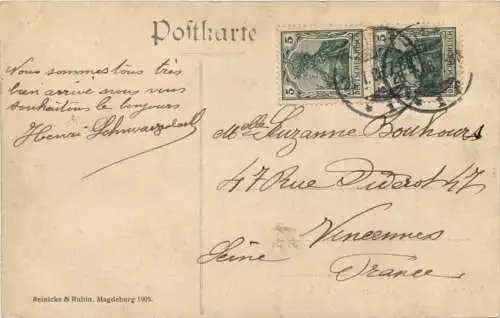 Postkarte
5
5
DEUTSCHES REICH
Nous sommes tous très
bien arrivé nous vous
souhaitons le toujours
Henri Schwarzdach
Melle Suzanne Bouhours
47 Rue Diderot 47
Vincennes
Seine
France
Reinicke & Rubin, Magdeburg 1909.